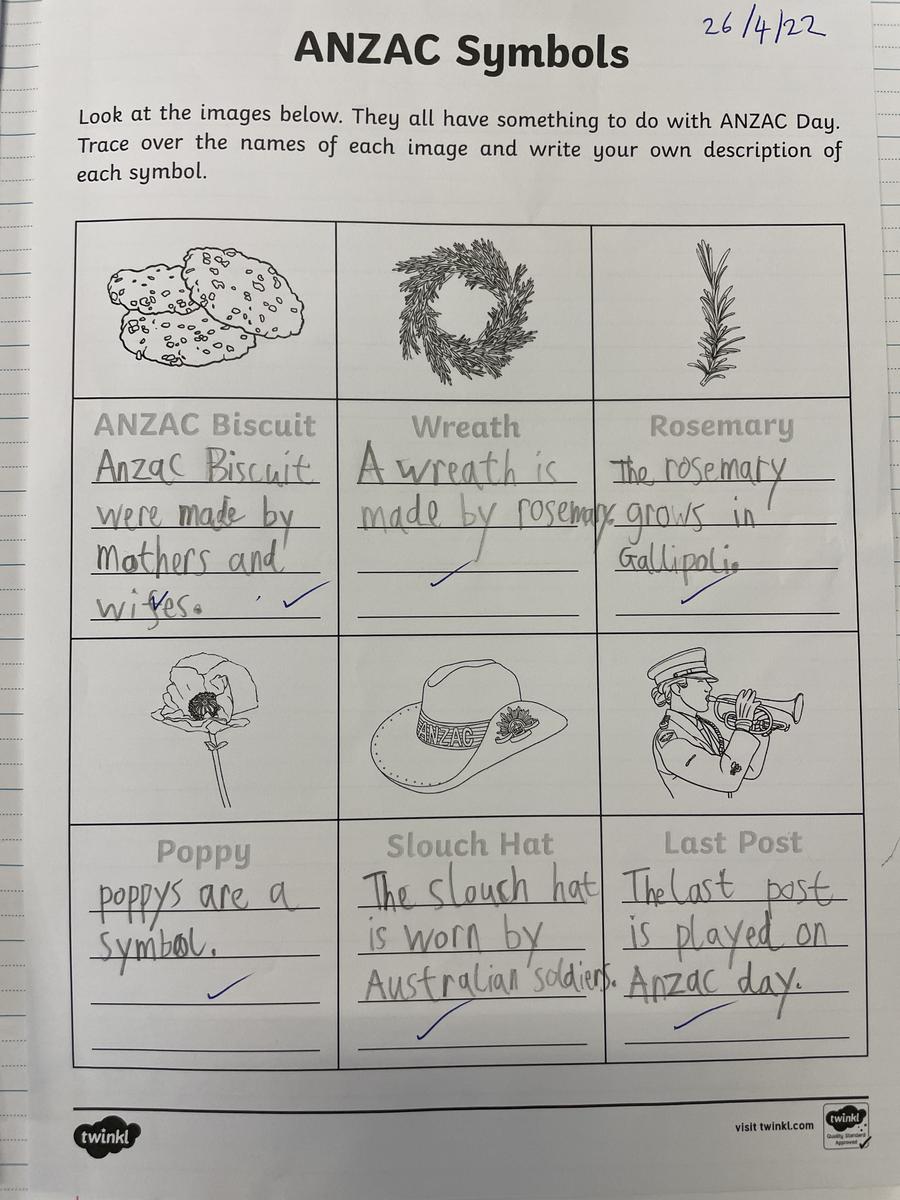 26/4/22
ANZAC Symbols
Look at the images below. They all have something to do with ANZAC Day.
Trace over the names of each image and write your own description of
each symbol.
ANZAC Biscuit
Anzac Biscuit
were made by
Mothers and
wifes.
Wreath
A wreath is
made by rosemary.
Rosemary
The rosemary
grows in
Gallipoli.
ANZAC
Poppy
poppys are a
symbol.
Slouch Hat
The slouch hat
is worn by
Australian soldiers.
Last Post
The last post
is played on
Anzac day.
twinkl
visit twinkl.com
twinkl
Quality Standard
Approved